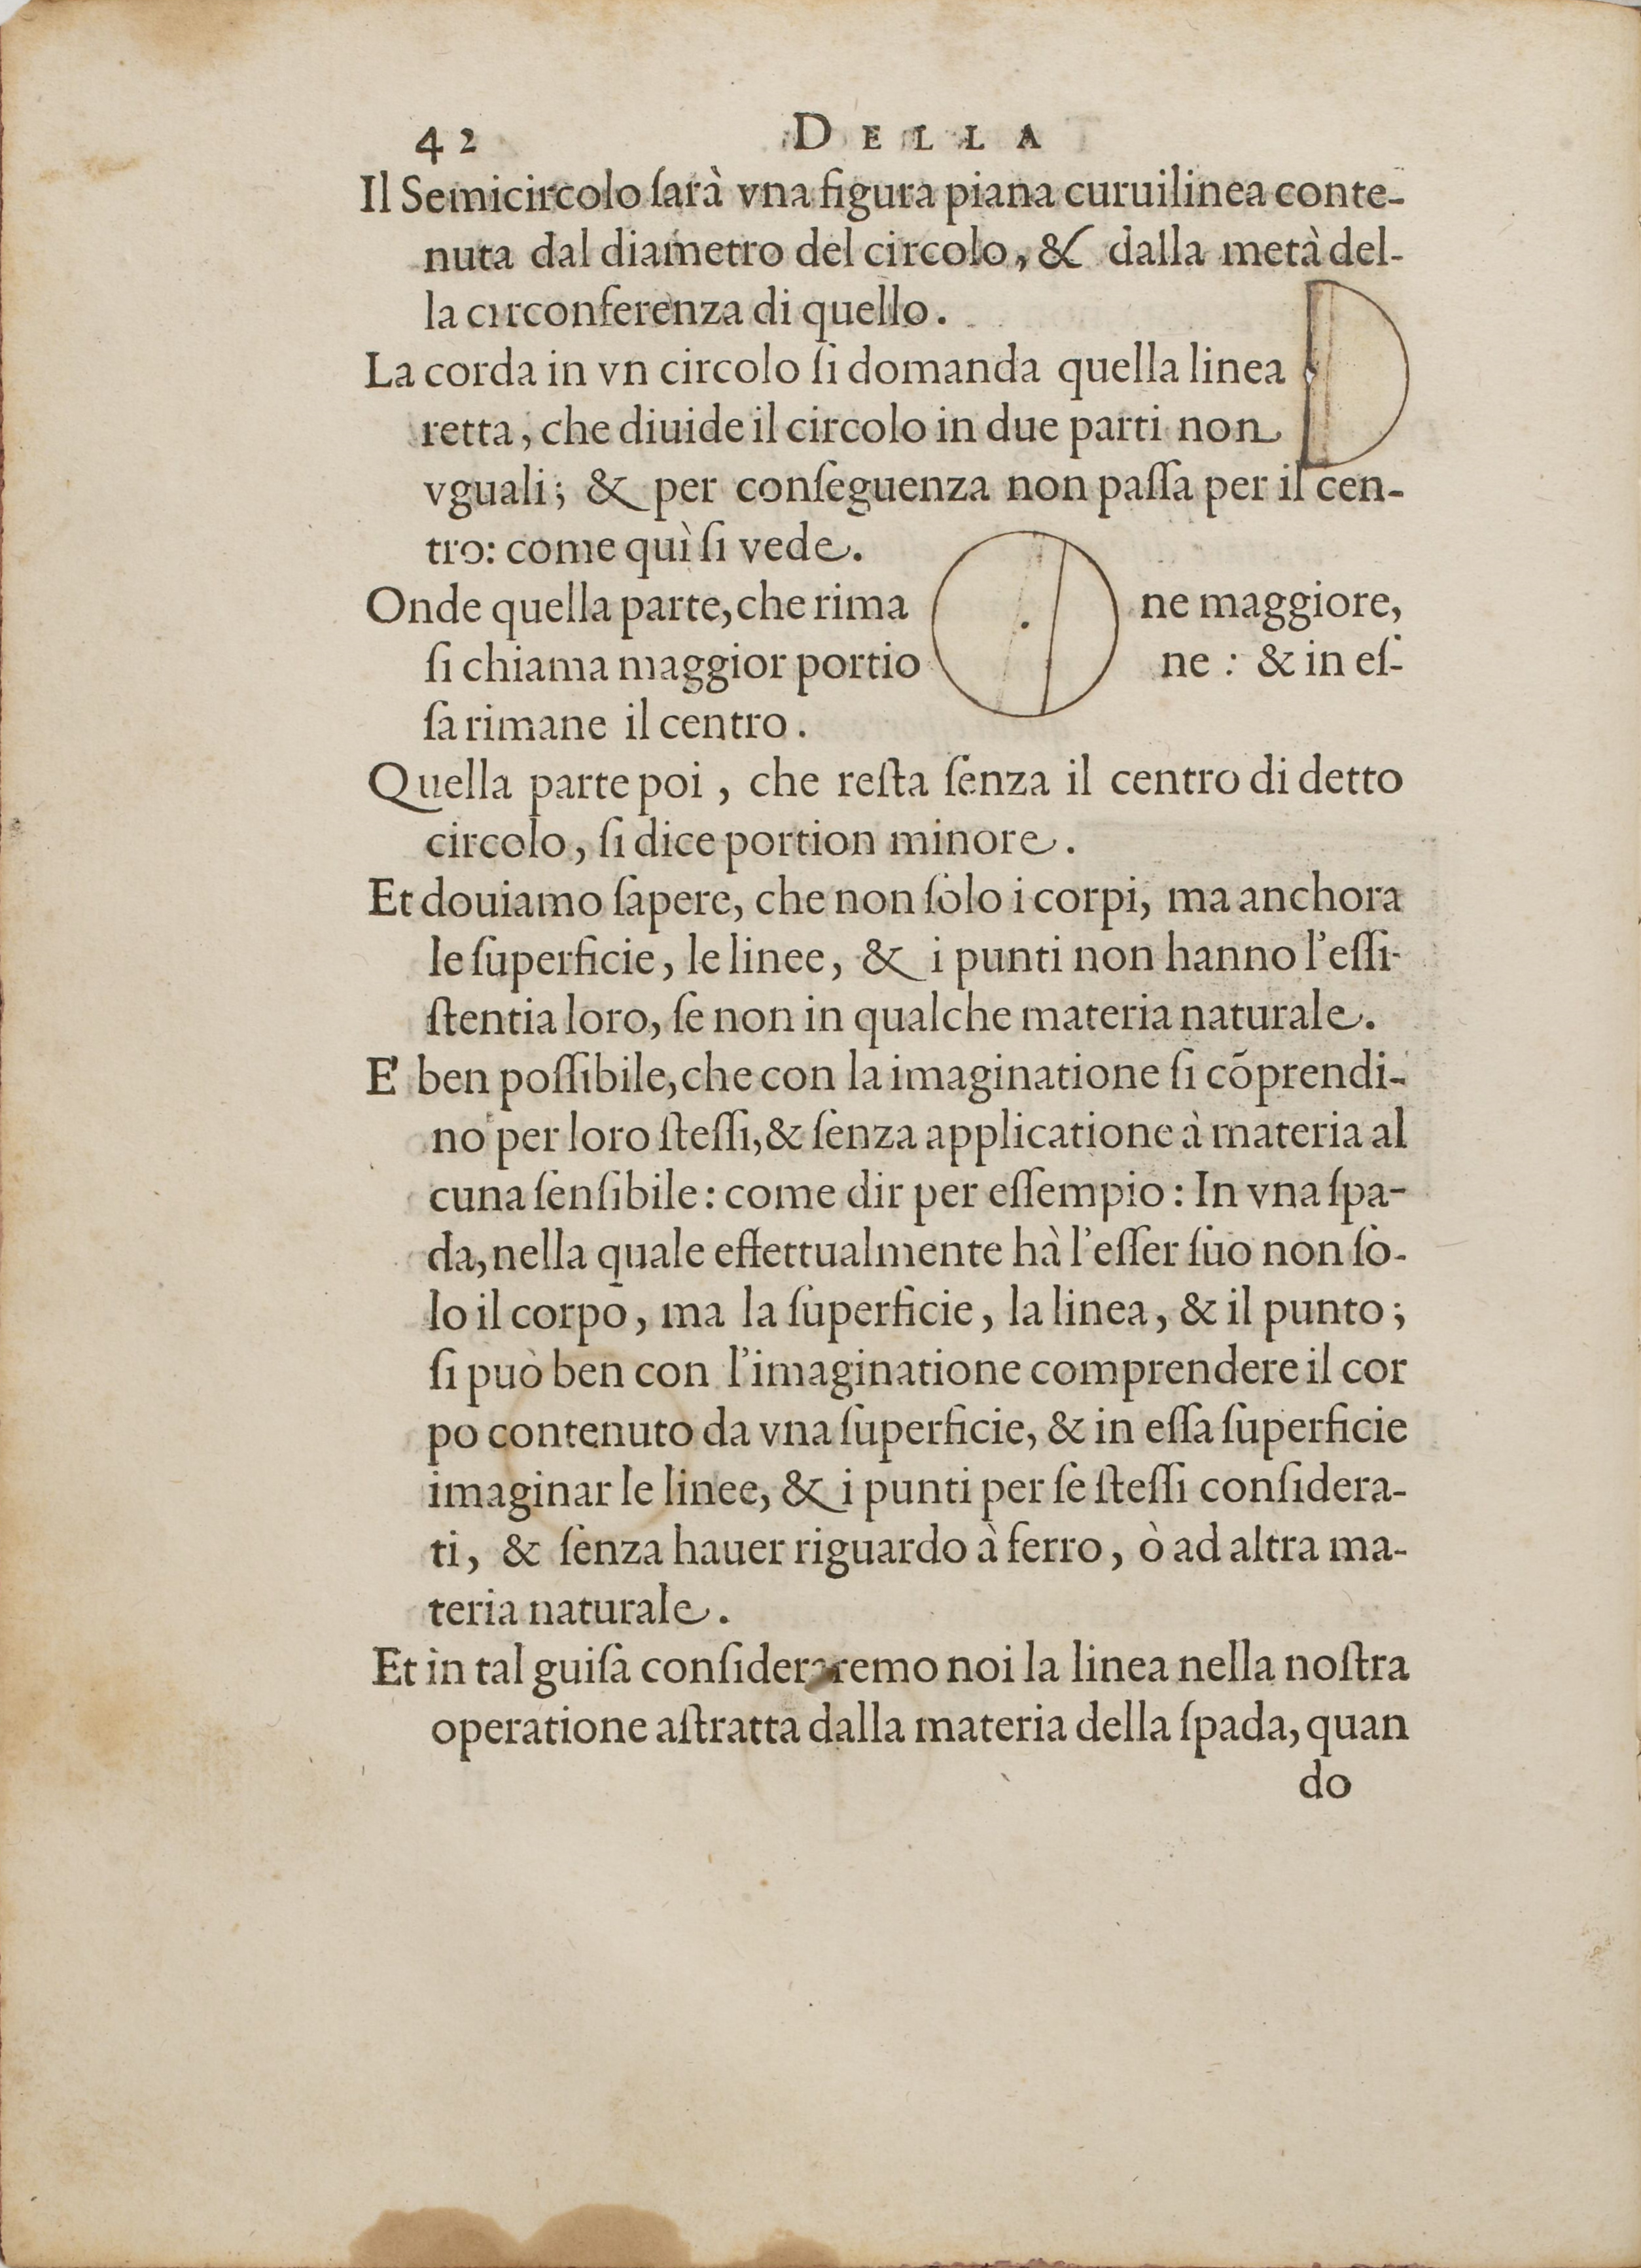 42 DELLA
Il Semicircolo ſarà vna figura piana curuilinea conte-
nuta dal diametro del circolo, & dalla metà del-
la circonferenza di quello.
La corda in vn circolo ſi domanda quella linea
retta, che diuide il circolo in due parti non
vguali; & per conſeguenza non paſſa per il cen-
tro: come quì ſi vede.
Onde quella parte, che rima ne maggiore,
ſi chiama maggior portio ne: & in eſ-
ſa rimane il centro.
Quella parte poi, che reſta ſenza il centro di detto
circolo, ſi dice portion minore.
Et douiamo ſapere, che non ſolo i corpi, ma anchora
le ſuperficie, le linee, & i punti non hanno l'eſſi-
ſtentia loro, ſe non in qualche materia naturale.
E' ben poſſibile, che con la imaginatione ſi cōprendi-
no per loro ſteſſi, & ſenza applicatione à materia al
cuna ſenſibile: come dir per eſſempio: In vna ſpa-
da, nella quale effettualmente hà l'eſſer ſuo non ſo-
lo il corpo, ma la ſuperficie, la linea, & il punto;
ſi può ben con l'imaginatione comprendere il cor
po contenuto da vna ſuperficie, & in eſſa ſuperficie
imaginar le linee, & i punti per ſè ſteſſi conſidera-
ti, & ſenza hauer riguardo à ferro, ò ad altra ma-
teria naturale.
Et in tal guiſa conſideraremo noi la linea nella noſtra
operatione aſtratta dalla materia della ſpada, quan
do